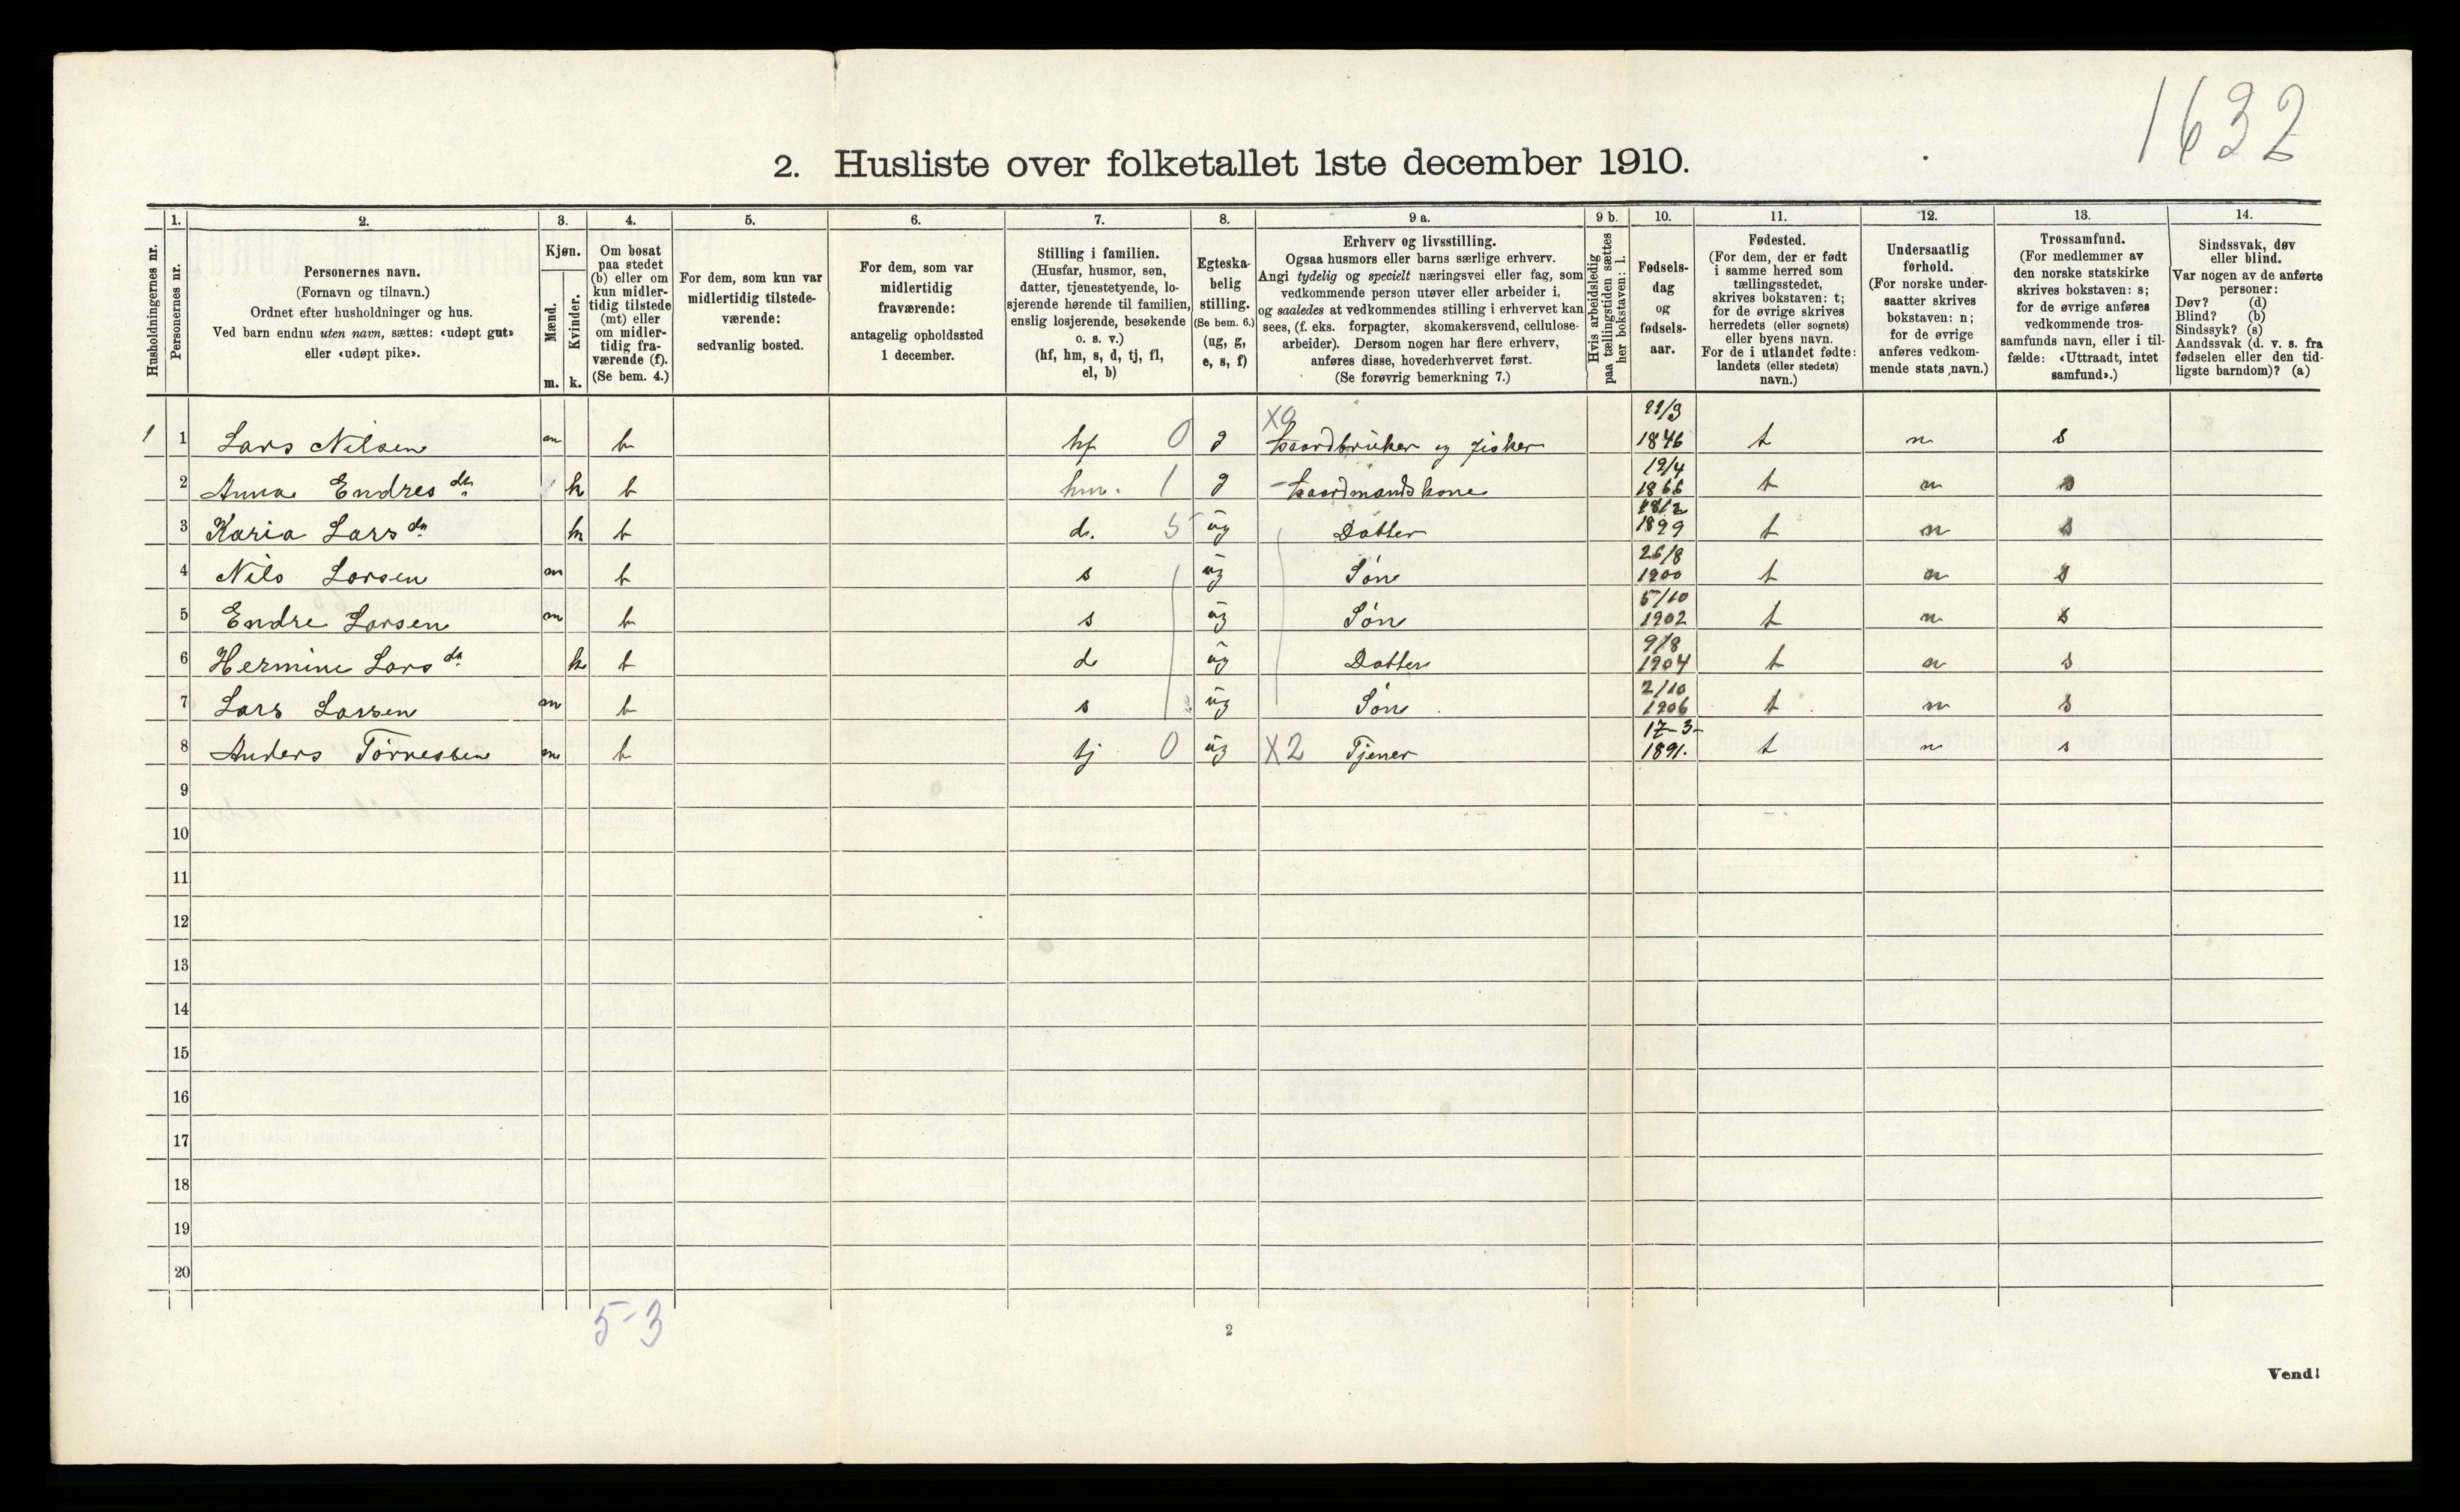 1632
2. Husliste over folketallet 1ste december 1910.
1. 2. 3. 4. 5. 6. 7. 8. 9 a. 9 b. 10. 11. 12. 13. 14.
Husholdningernes nr.
Personernes nr.
Personernes navn.
(Fornavn og tilnavn.)
Ordnet efter husholdninger og hus.
Ved barn endnu uten navn, sættes: «udøpt gut»
eller «udøpt pike».
Kjøn.
Mænd.
m.
Kvinder.
k.
Om bosat
paa stedet
(b) eller om
kun midler-
tidig tilstede
(mt) eller
om midler-
tidig fra-
værende (f).
(Se bem. 4.)
For dem, som kun var
midlertidig tilstede-
værende:
sedvanlig bosted.
For dem, som var
midlertidig
fraværende:
antagelig opholdssted
1 december.
Stilling i familien.
(Husfar, husmor, søn,
datter, tjenestetyende, lo-
sjerende hørende til familien,
enslig losjerende, besøkende
o. s. v.)
(hf, hm, s, d, tj, fl,
el, b)
Egteska-
belig
stilling.
(Se bem. 6.)
(ug, g,
e, s, f)
Erhverv og livsstilling.
Ogsaa husmors eller barns særlige erhverv.
Angi tydelig og specielt næringsvei eller fag, som
vedkommende person utøver eller arbeider i,
og saaledes at vedkommendes stilling i erhvervet kan
sees, (f. eks. forpagter, skomakersvend, cellulose-
arbeider). Dersom nogen har flere erhverv,
anføres disse, hovederhvervet først.
(Se forøvrig bemerkning 7.)
Hvis arbeidsledig
paa tællingstiden sættes
her bokstaven: l.
Fødsels-
dag
og
fødsels-
aar.
Fødested.
(For dem, der er født
i samme herred som
tællingsstedet,
skrives bokstaven: t;
for de øvrige skrives
herredets (eller sognets)
eller byens navn.
For de i utlandet fødte:
landets (eller stedets)
navn.)
Undersaatlig
forhold.
(For norske under-
saatter skrives
bokstaven: n;
for de øvrige
anføres vedkom-
mende stats navn.)
Trossamfund.
(For medlemmer av
den norske statskirke
skrives bokstaven: s;
for de øvrige anføres
vedkommende tros-
samfunds navn, eller i til-
fælde: «Uttraadt, intet
samfund».)
Sindssvak, døv
eller blind.
Var nogen av de anførte
personer:
Døv? (d)
Blind? (b)
Sindssyk? (s)
Aandssvak (d. v. s. fra
fødselen eller den tid-
ligste barndom)? (a)
1 1 Lars Nilsen m b hf 0 g Gaardbruker og fisker 21/3 1846 t n s
2 Anna Endresdr k b hm. 1 g Gaardmandskone 19/4 1866 t n s
3 Karia Larsdr k b d. 5 ug Datter 18/2 1899 t n s
4 Nils Larsen m b s ug Søn 26/8 1900 t n s
5 Endre Larsen m b s ug Søn 5/10 1902 t n s
6 Hermine Larsdr k b d ug Datter 9/8 1904 t n s
7 Lars Larsen m b s ug Søn 2/10 1906 t n s
8 Anders Tørresen m b tj 0 ug X2 Tjener 17-3- 1891. t n s
9
10
11
12
13
14
15
16
17
18
19
20
5-3
2
Vend!